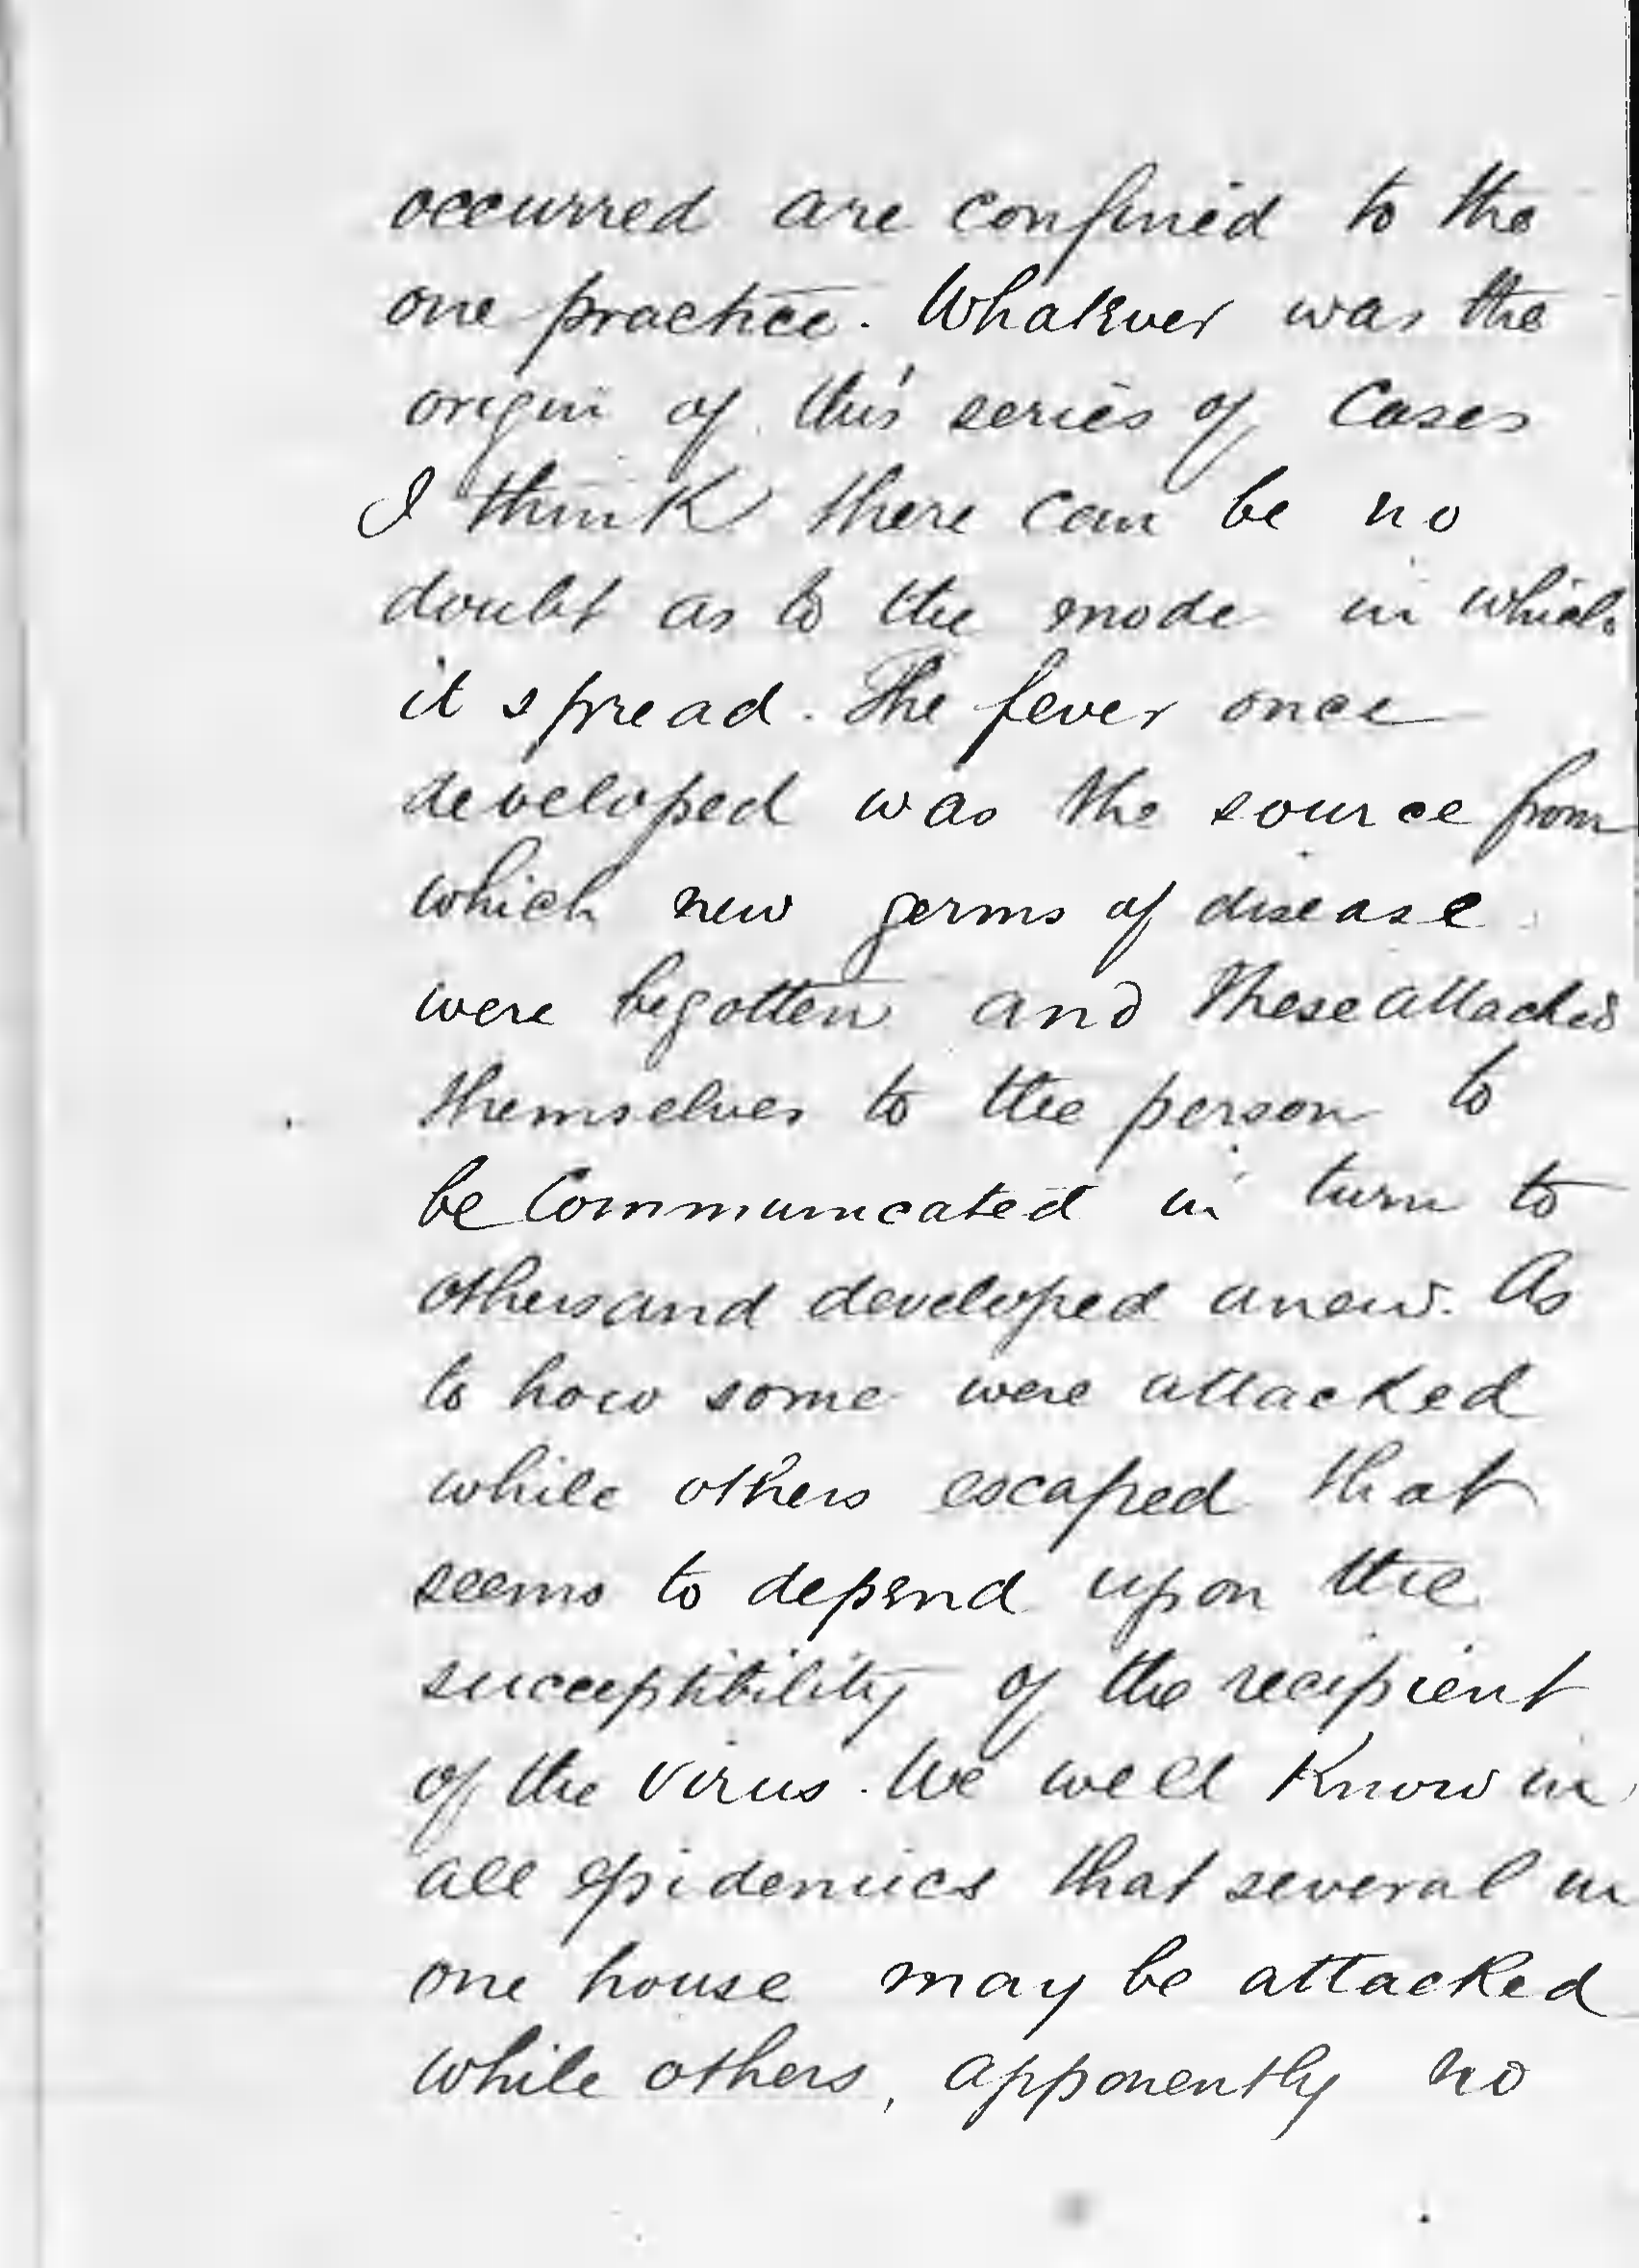 occurred are confined to the
one practice. Whatever was the
origin of this series of Cases
I think there can be no
doubt as to the mode in which
it spread. The fever once
developed was the source from
which new germs of disease
were begotten and these attached
themselves to the person to
be Communicated in turn to
others and developed anew. As
to how some were attacked
while others escaped that
seems to depend upon the
succeptibility of the recipient
of the virus. We well Know in
all epidemics that several in
one house may be attacked
while others, apponently no